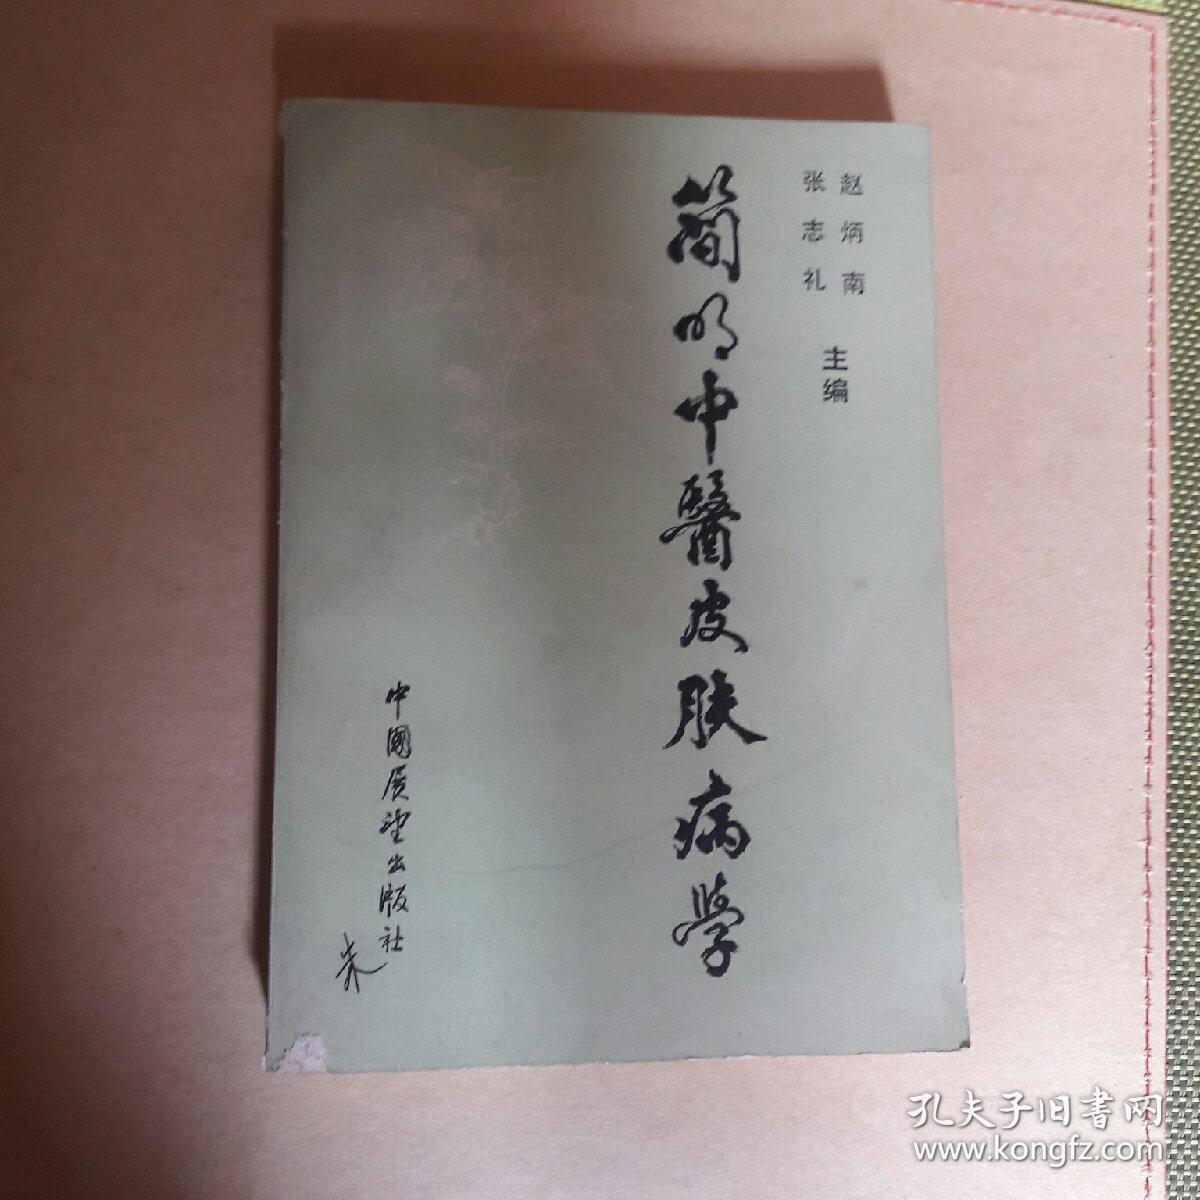 赵炳南
张志礼
主编
简明中醫皮肤病学
中國展望出版社
朱
孔夫子旧书网
www.kongfz.com